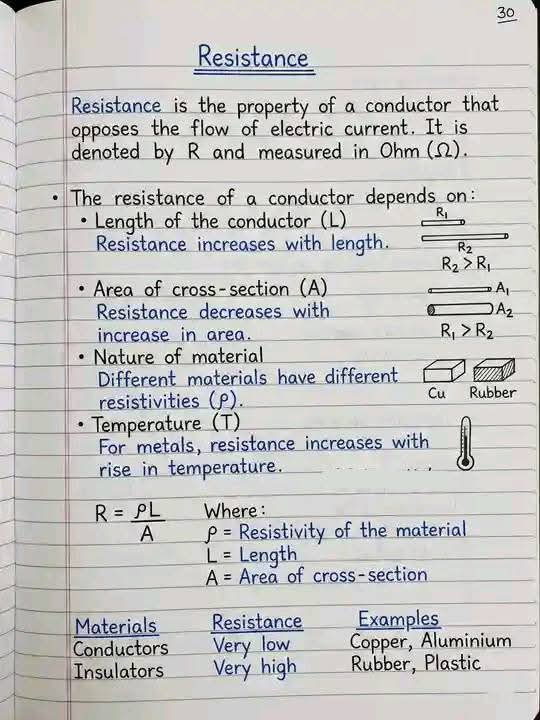 30
Resistance
Resistance is the property of a conductor that
opposes the flow of electric current. It is
denoted by R and measured in Ohm (Ω).
• The resistance of a conductor depends on:
• Length of the conductor (L)
Resistance increases with length.
R₁
R₂
R₂ > R₁
• Area of cross-section (A)
Resistance decreases with
increase in area.
A₁
A₂
R₁ > R₂
• Nature of material
Different materials have different
resistivities (ρ).
Cu Rubber
• Temperature (T)
For metals, resistance increases with
rise in temperature.
R = ρL / A
Where:
ρ = Resistivity of the material
L = Length
A = Area of cross-section
Materials Resistance Examples
Conductors Very low Copper, Aluminium
Insulators Very high Rubber, Plastic